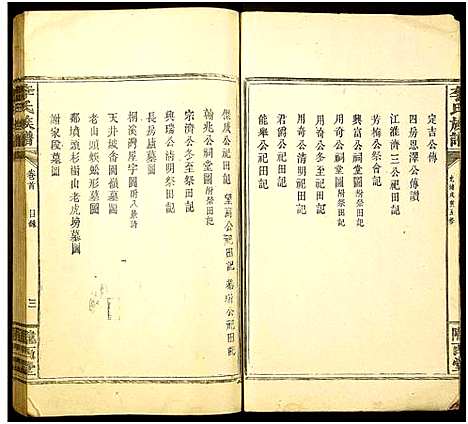 李氏族譜
光緒戊戌五修
隴西堂
定吉公傳
四房恩澤公傳讀
江淮濟三公祀田記
芳梅公祭會記
興富公祠堂圖 附祭田記
用奇公祠堂圖 附祭田記
用奇公清明祭田記
君爵公祀田記
能舉公祀田記
俊成公祀田記 望萬公祀田記 公祀田記
翰兆公祠堂圖 附祭田記
宗濟公冬至祭田記
興瑞公清明祭田記
長易壠墓圖
桐溪灣屋宇圖 附八景詩
天井坡香園墓圖
老山頭蜈蚣形墓圖
鄰墳頭杉樹山老虎塝墓圖
謝家段墓圖
李氏族譜
卷首
目錄
三
隴西堂